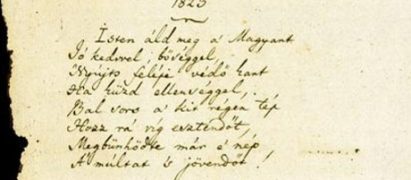 1823
Isten áld meg a Magyart
Jó kedvvel, bőséggel,
Nyújts feléje védő kart
Ha küzd ellenséggel,
Bal sors a kit régen tép
Hozz rá víg esztendőt,
Megbünhödte már e nép
A múltat 's jövendőt!